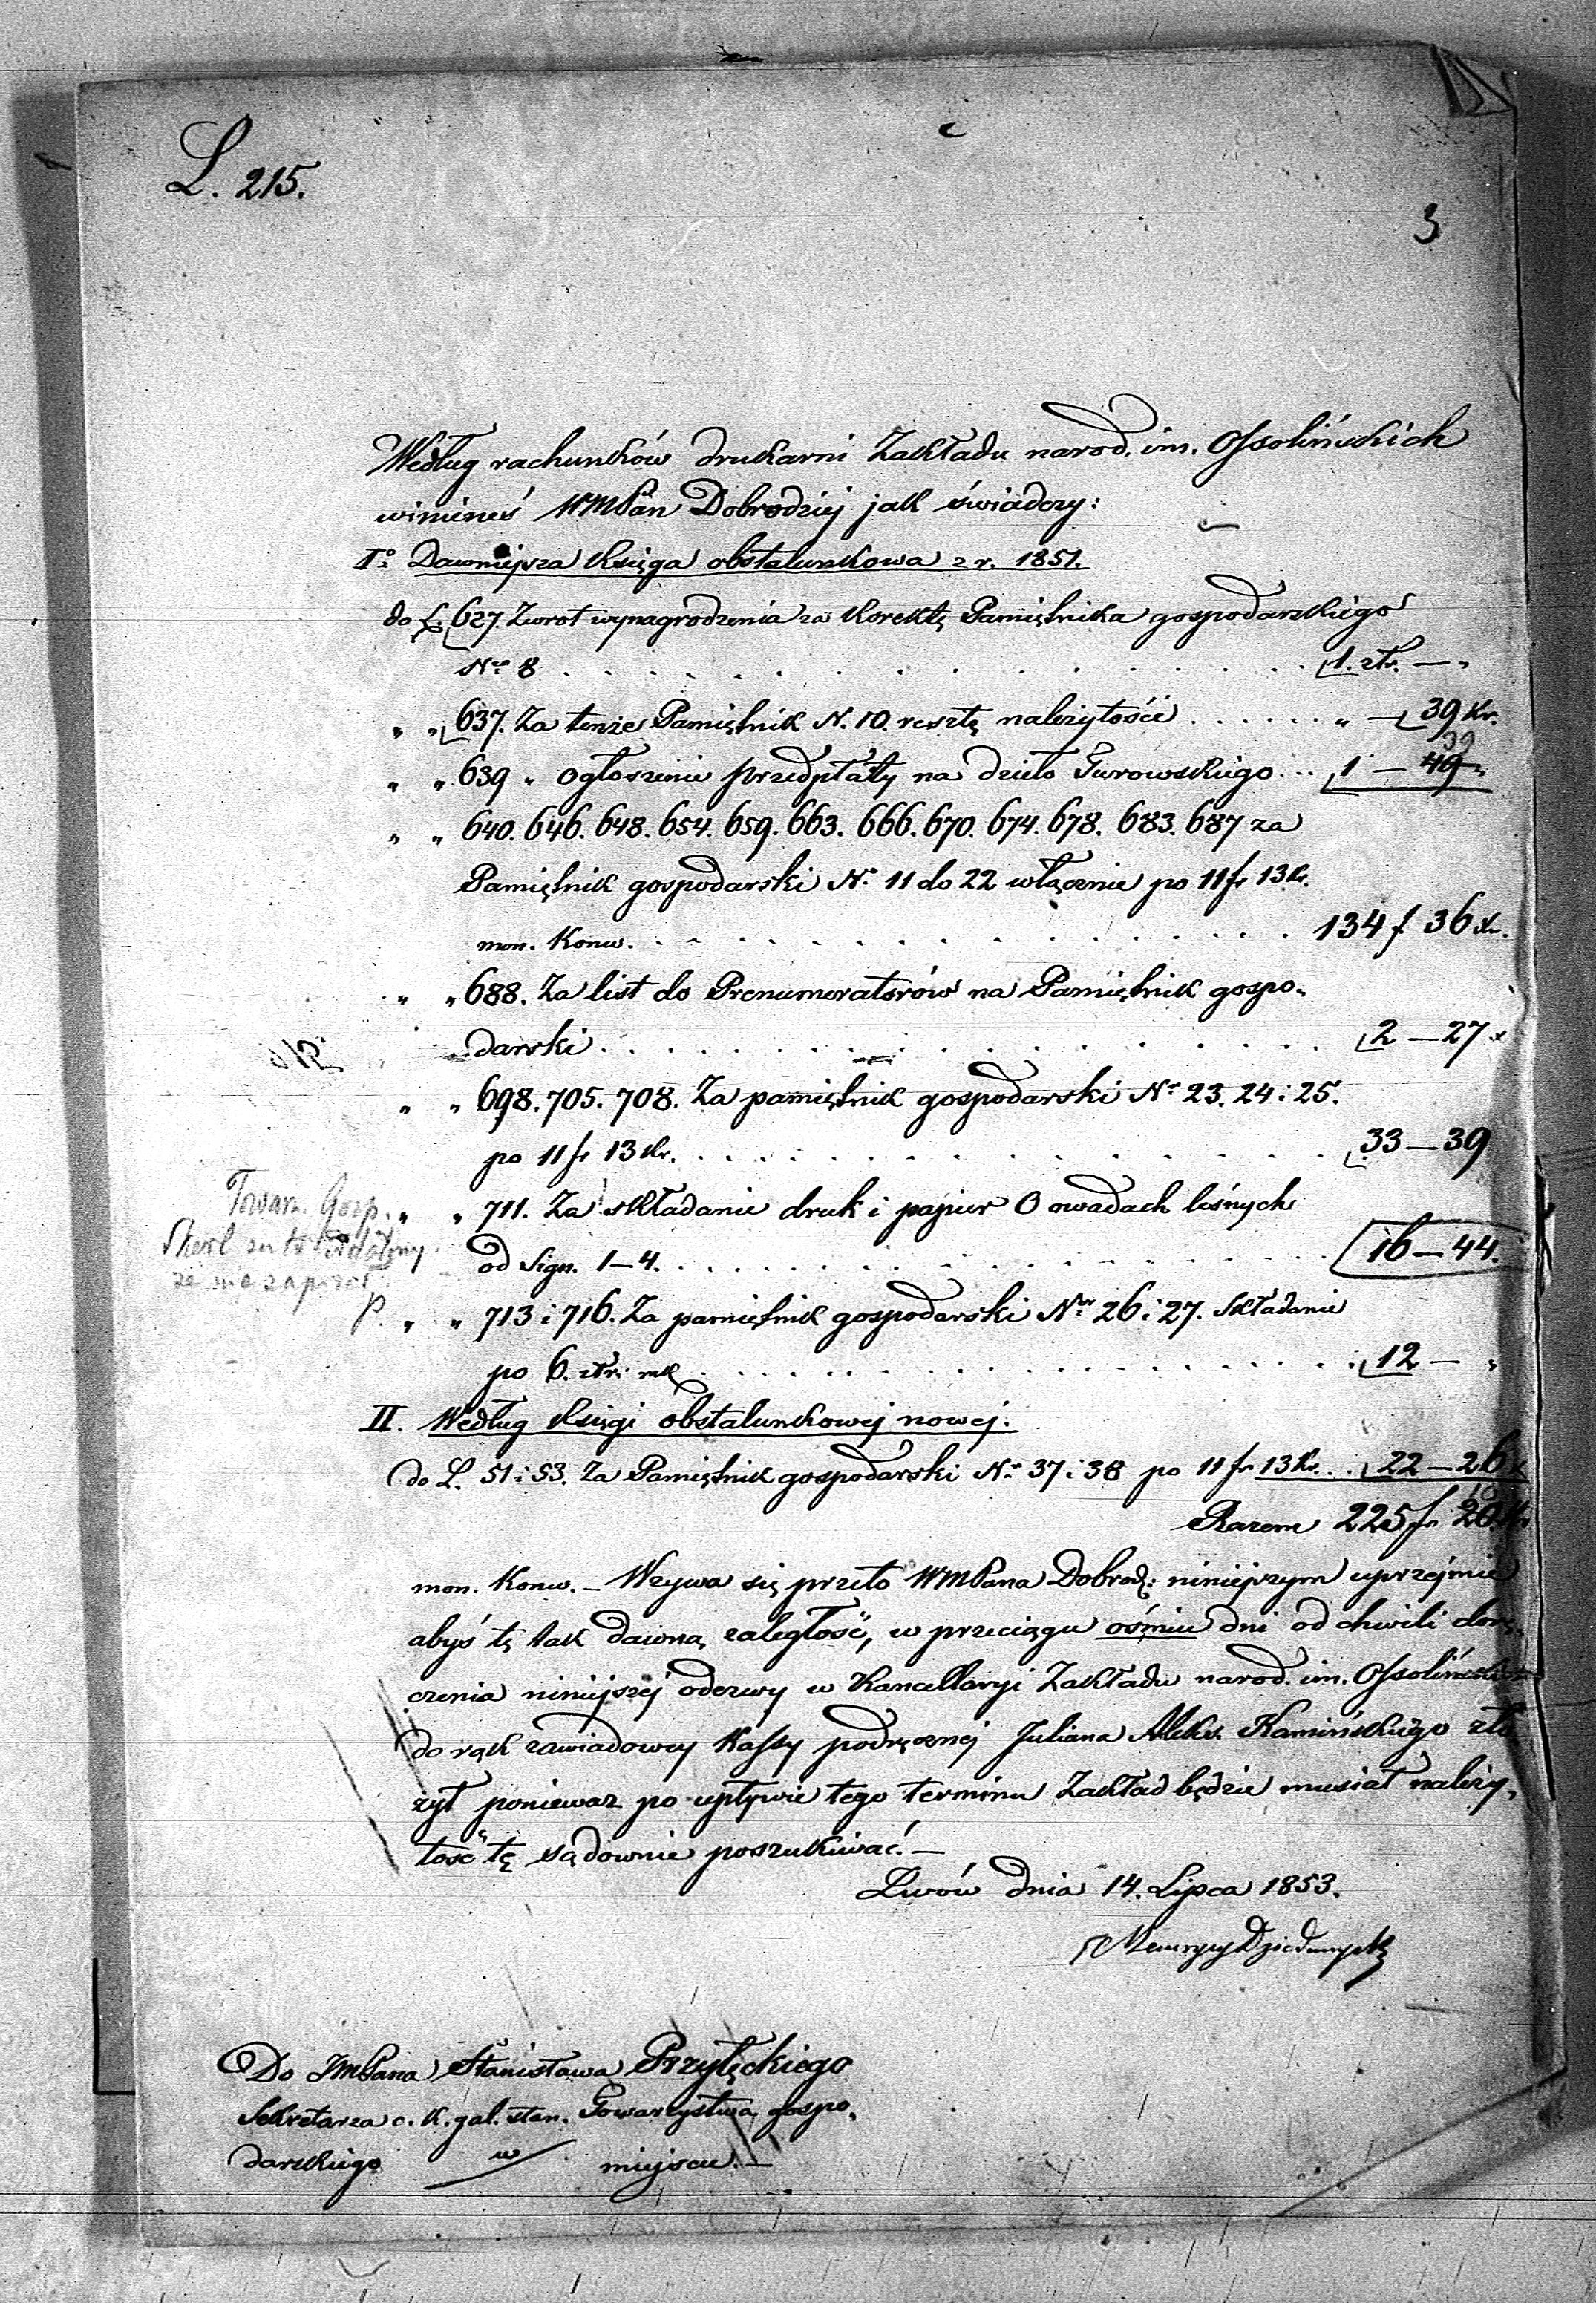 L. 215.
3
Według rachunków drukarni Zakładu narod. im. Ossolińskich
winieneś WMPan Dobrodziej jak świadczy:
I° Dawniejsza księga obstalunkowa z r. 1851.
do L. 627. Zwrot wynagrodzenia za korektę Pamiętnika gospodarskiego
Nro 8 . . . . . . . . . . . . 1. złr. — „
„ „ 637. Za tenże Pamiętnik N. 10. resztę należytości . . . . . . „ — 39 kr.
39
„ „ 639 „ ogłoszenie przedpłaty na dzieło Gurowskiego . . . 1 — 49 „
„ „ 640. 646. 648. 654. 659. 663. 666. 670. 674. 678. 683. 687 za
Pamiętnik gospodarski Nr. 11 do 22 włącznie po 11 fr 13 kr.
mon. konw. . . . . . . . . . . . . . . 134 f 36 kr.
„ „ 688. Za list do Prenumeratorów na Pamiętnik gospo„
darski . . . . . . . . . . . . . . . 2 — 27 x
„ „ 698. 705. 708. Za pamiętnik gospodarski Nr 23. 24 i 25.
po 11 fr 13 kr. . . . . . . . . . . . . . . 33 — 39
Towarz. Gosp.
„ „ 711. Za składanie druk i papier O owadach leśnych
od Sign. 1—4. . . . . . . . . . . . . . . 16 — 44.
że nie zapisał
p. „ „ 713 i 716. Za pamiętnik gospodarski Nr 26 i 27. Składanie
po 6. złr. mk . . . . . . . . . . . . . . . 12 — „
II. Według księgi obstalunkowej nowej.
do L. 51 i 53. Za Pamiętnik gospodarski Nr. 37 i 38 po 11 fr 13 kr. . . 22 — 26 x
Razem 225 fr 20 kr
mon. konw. — Wzywa się przeto WMPana Dobrodz: niniejszym uprzejmie
abyś tę tak dawną zaległość, w przeciągu ośmiu dni od chwili dorę„
czenia niniejszej odezwy w Kancellaryi Zakładu narod. im. Ossolińskich
do rąk zawiadowcy kassy podręcznej Juliana Aleks. Kamińskiego zło
żył ponieważ po upływie tego terminu Zakład będzie musiał należy„
tość tę sądownie poszukiwać. —
Lwów dnia 14. Lipca 1853.
Maurycy Dzieduszycki
Do JMPana Stanisława Przyłęckiego
Sekretarza c. k. gal. stan. Towarzystwa gospo„
darskiego w miejscu. —